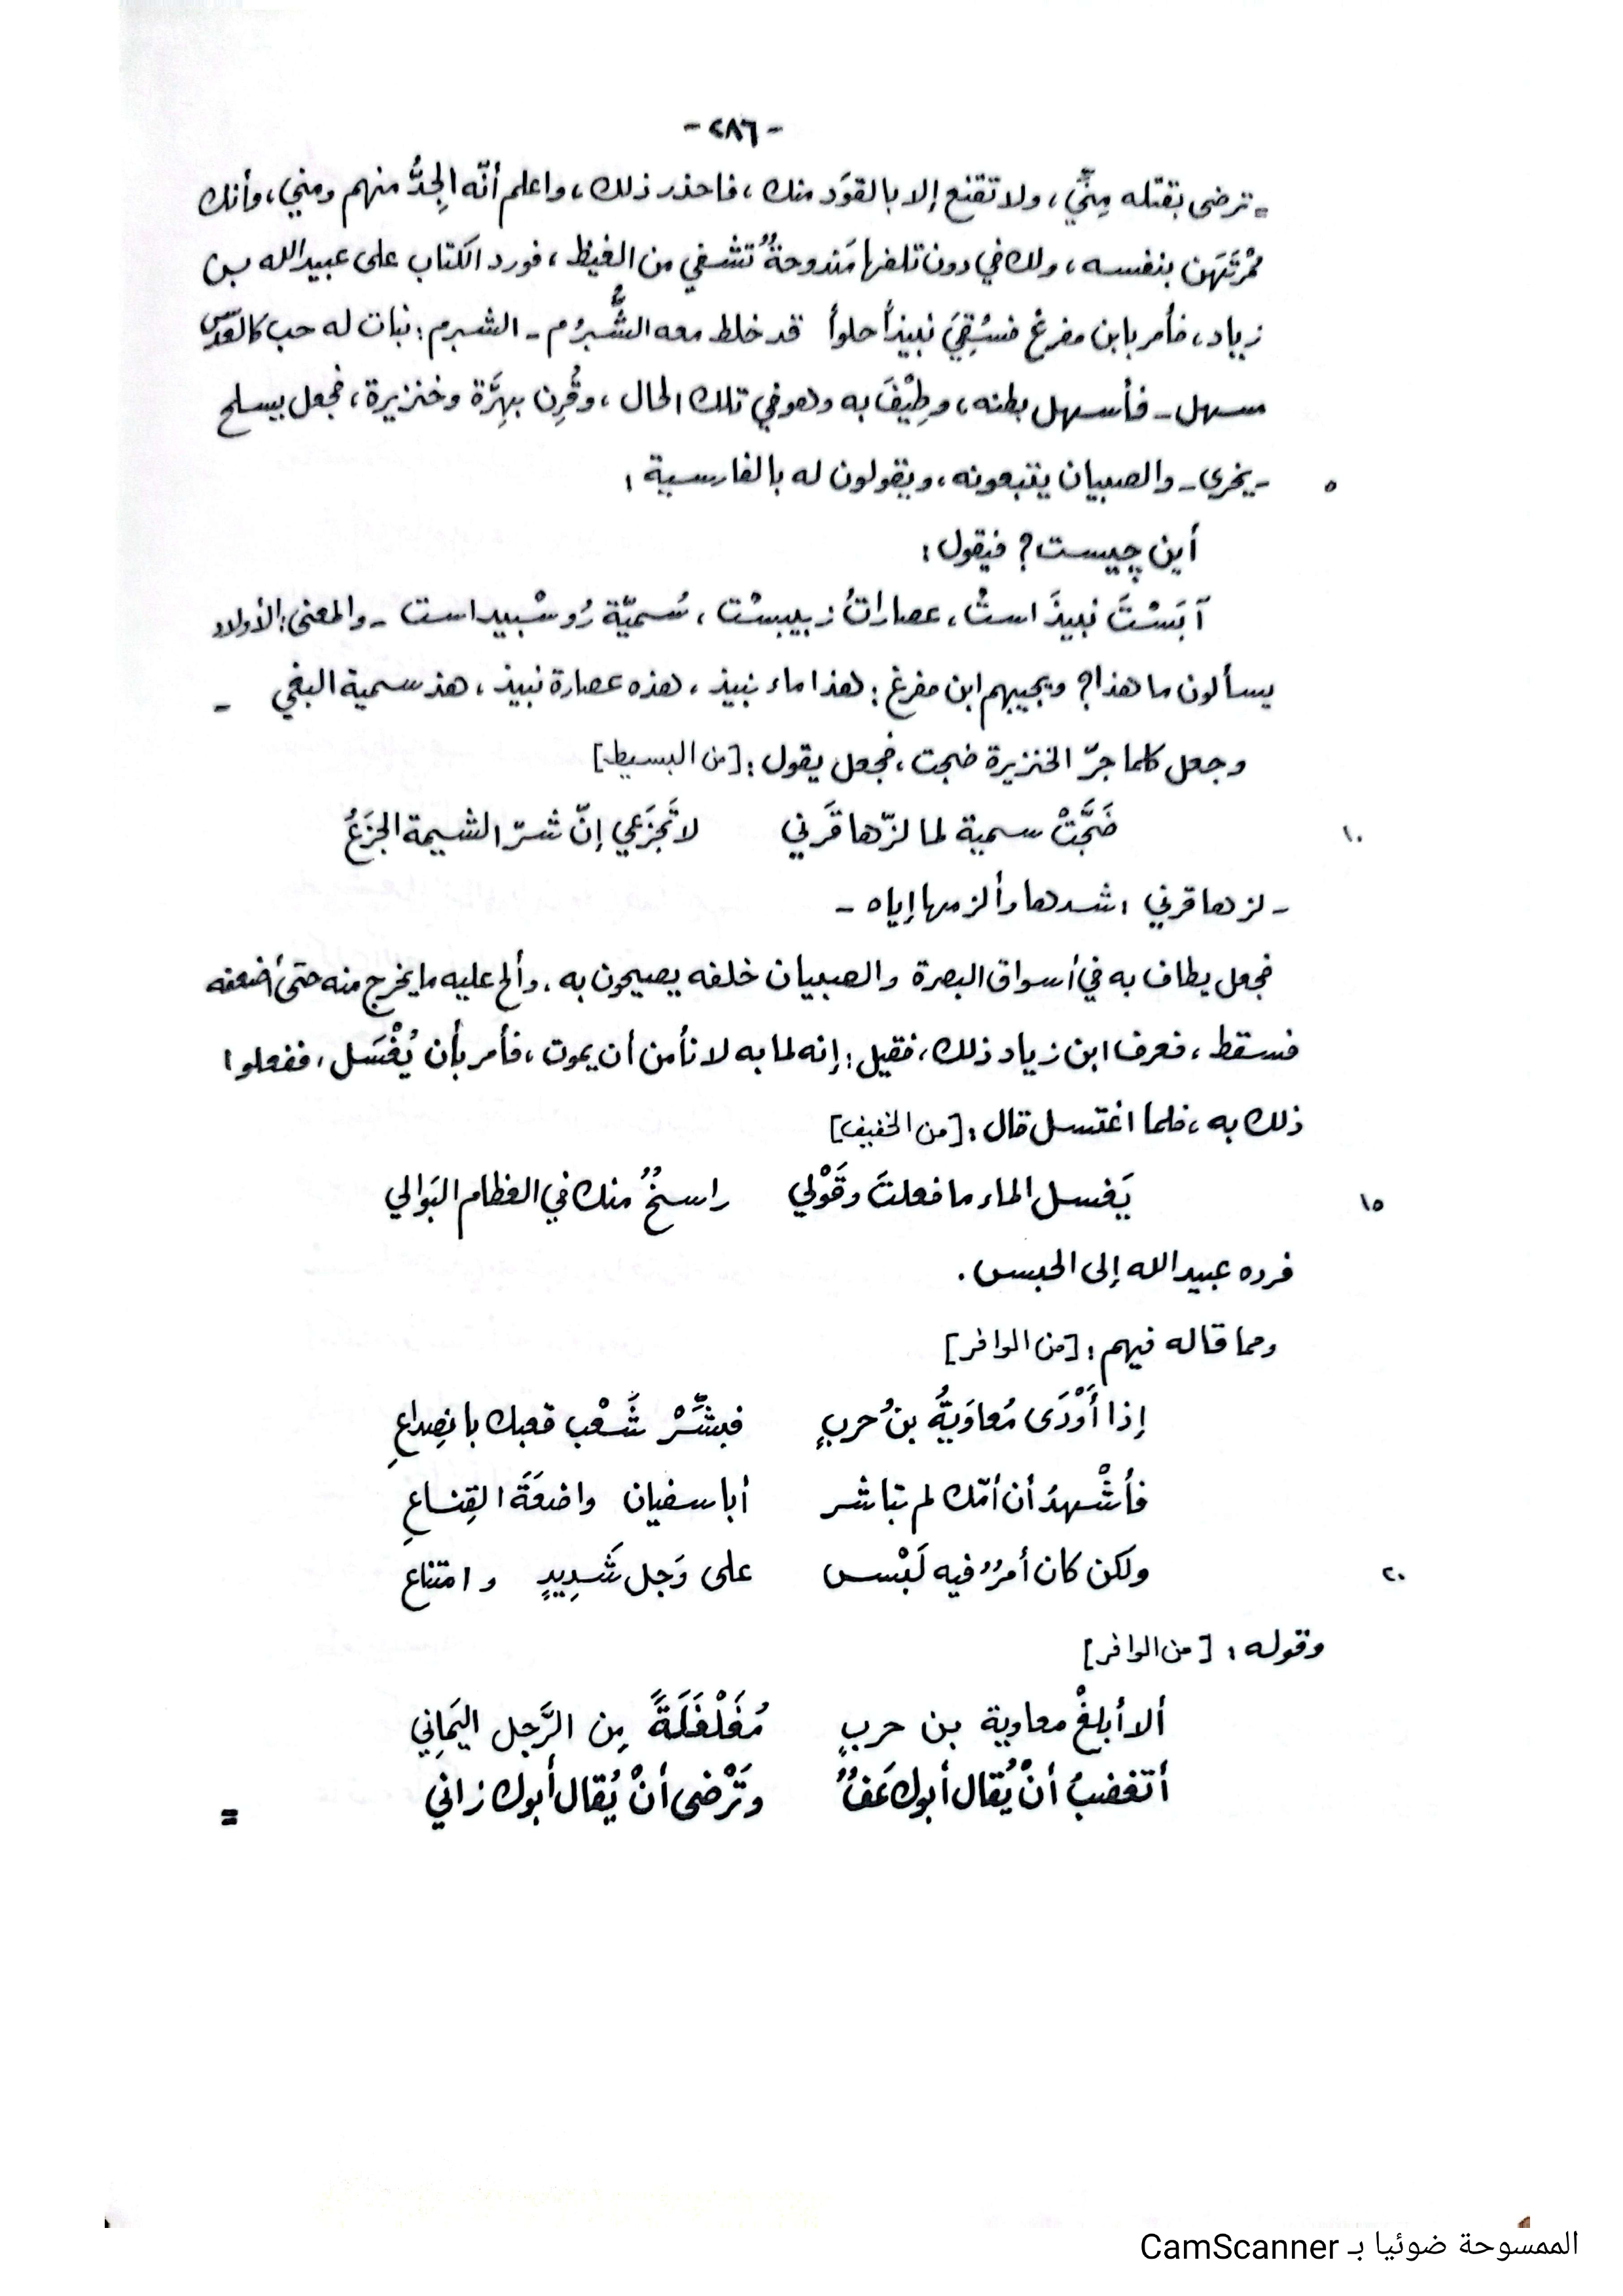 -٢٨٦-
= ترضى بقتله مِنِّي، ولا تقنع إلا بالقوَد منك، فاحذر ذلك، واعلم أنّه الجِدُّ منهم ومني، وأنك
مُرْتَهَن بنفسه، ولك في دون تلفها مَندوحةٌ تشفي من الغيظ، فورد الكتاب على عبيدالله بن
زياد، فأمر بابن مفرغ فسُقِيَ نبيذاً حلواً قد خلط معه الشُّبرُم - الشبرم: نبات له حب كالعدس
مسهل - فأسهل بطنه، وطِيْفَ به وهو في تلك الحال، وقُرِن بهِرَّة وخنزيرة، فجعل يسلح
٥ - يخرى - والصبيان يتبعونه، ويقولون له بالفارسية:
أين چيست؟ فيقول:
آبَسْتَ نبيذَ استْ، عصاراتُ زبيبسْت، سُميّة رُوسْبيداست - والمعنى: الأولاد
يسألون ما هذا؟ ويجيبهم ابن مفرغ: هذا ماء نبيذ، هذه عصارة نبيذ، هذ سمية البغي -
وجعل كلما جرّ الخنزيرة ضجت، فجعل يقول: [من البسيط]
١٠ ضَجَّتْ سمية لما لزّها قَرَني لا تَجزَعي إنّ شرّ الشيمة الجزَعُ
- لزها قرني: شدها وألزمها إياه -
فجعل يطاف به في أسواق البصرة والصبيان خلفه يصيحون به، وألح عليه ما يخرج منه حتى أضعفه
فسقط، فعرف ابن زياد ذلك، فقيل: إنه لما به لا نأمن أن يموت، فأمر بأن يُغْسَل، ففعلوا
ذلك به، فلما اغتسل قال: [من الخفيف]
١٥ يَغسل الماء ما فعلتَ وقَوْلي راسخٌ منك في العظام البَوالي
فرده عبيدالله إلى الحبس.
ومما قاله فيهم: [من الوافر]
إذا أَوْدَى مُعاوَيةُ بنُ حربٍ فبشِّرْ شَعْب قعبك بانصِداعِ
فأشْهدُ أن أمّك لم تباشر أبا سفيان واضعَةَ القِناعِ
٢٠ ولكن كان أمرٌ فيه لَبْس على وَجل شَدِيدٍ وامتناع
وقوله: [من الوافر]
ألا أبلغْ معاوية بن حربٍ مُغَلْغَلَةً مِن الرَّجل اليَمانِي
أتغضبُ أنْ يُقال أبوك عَفٌّ وتَرْضى أنْ يُقال أبوك زاني
=
الممسوحة ضوئيا بـ CamScanner